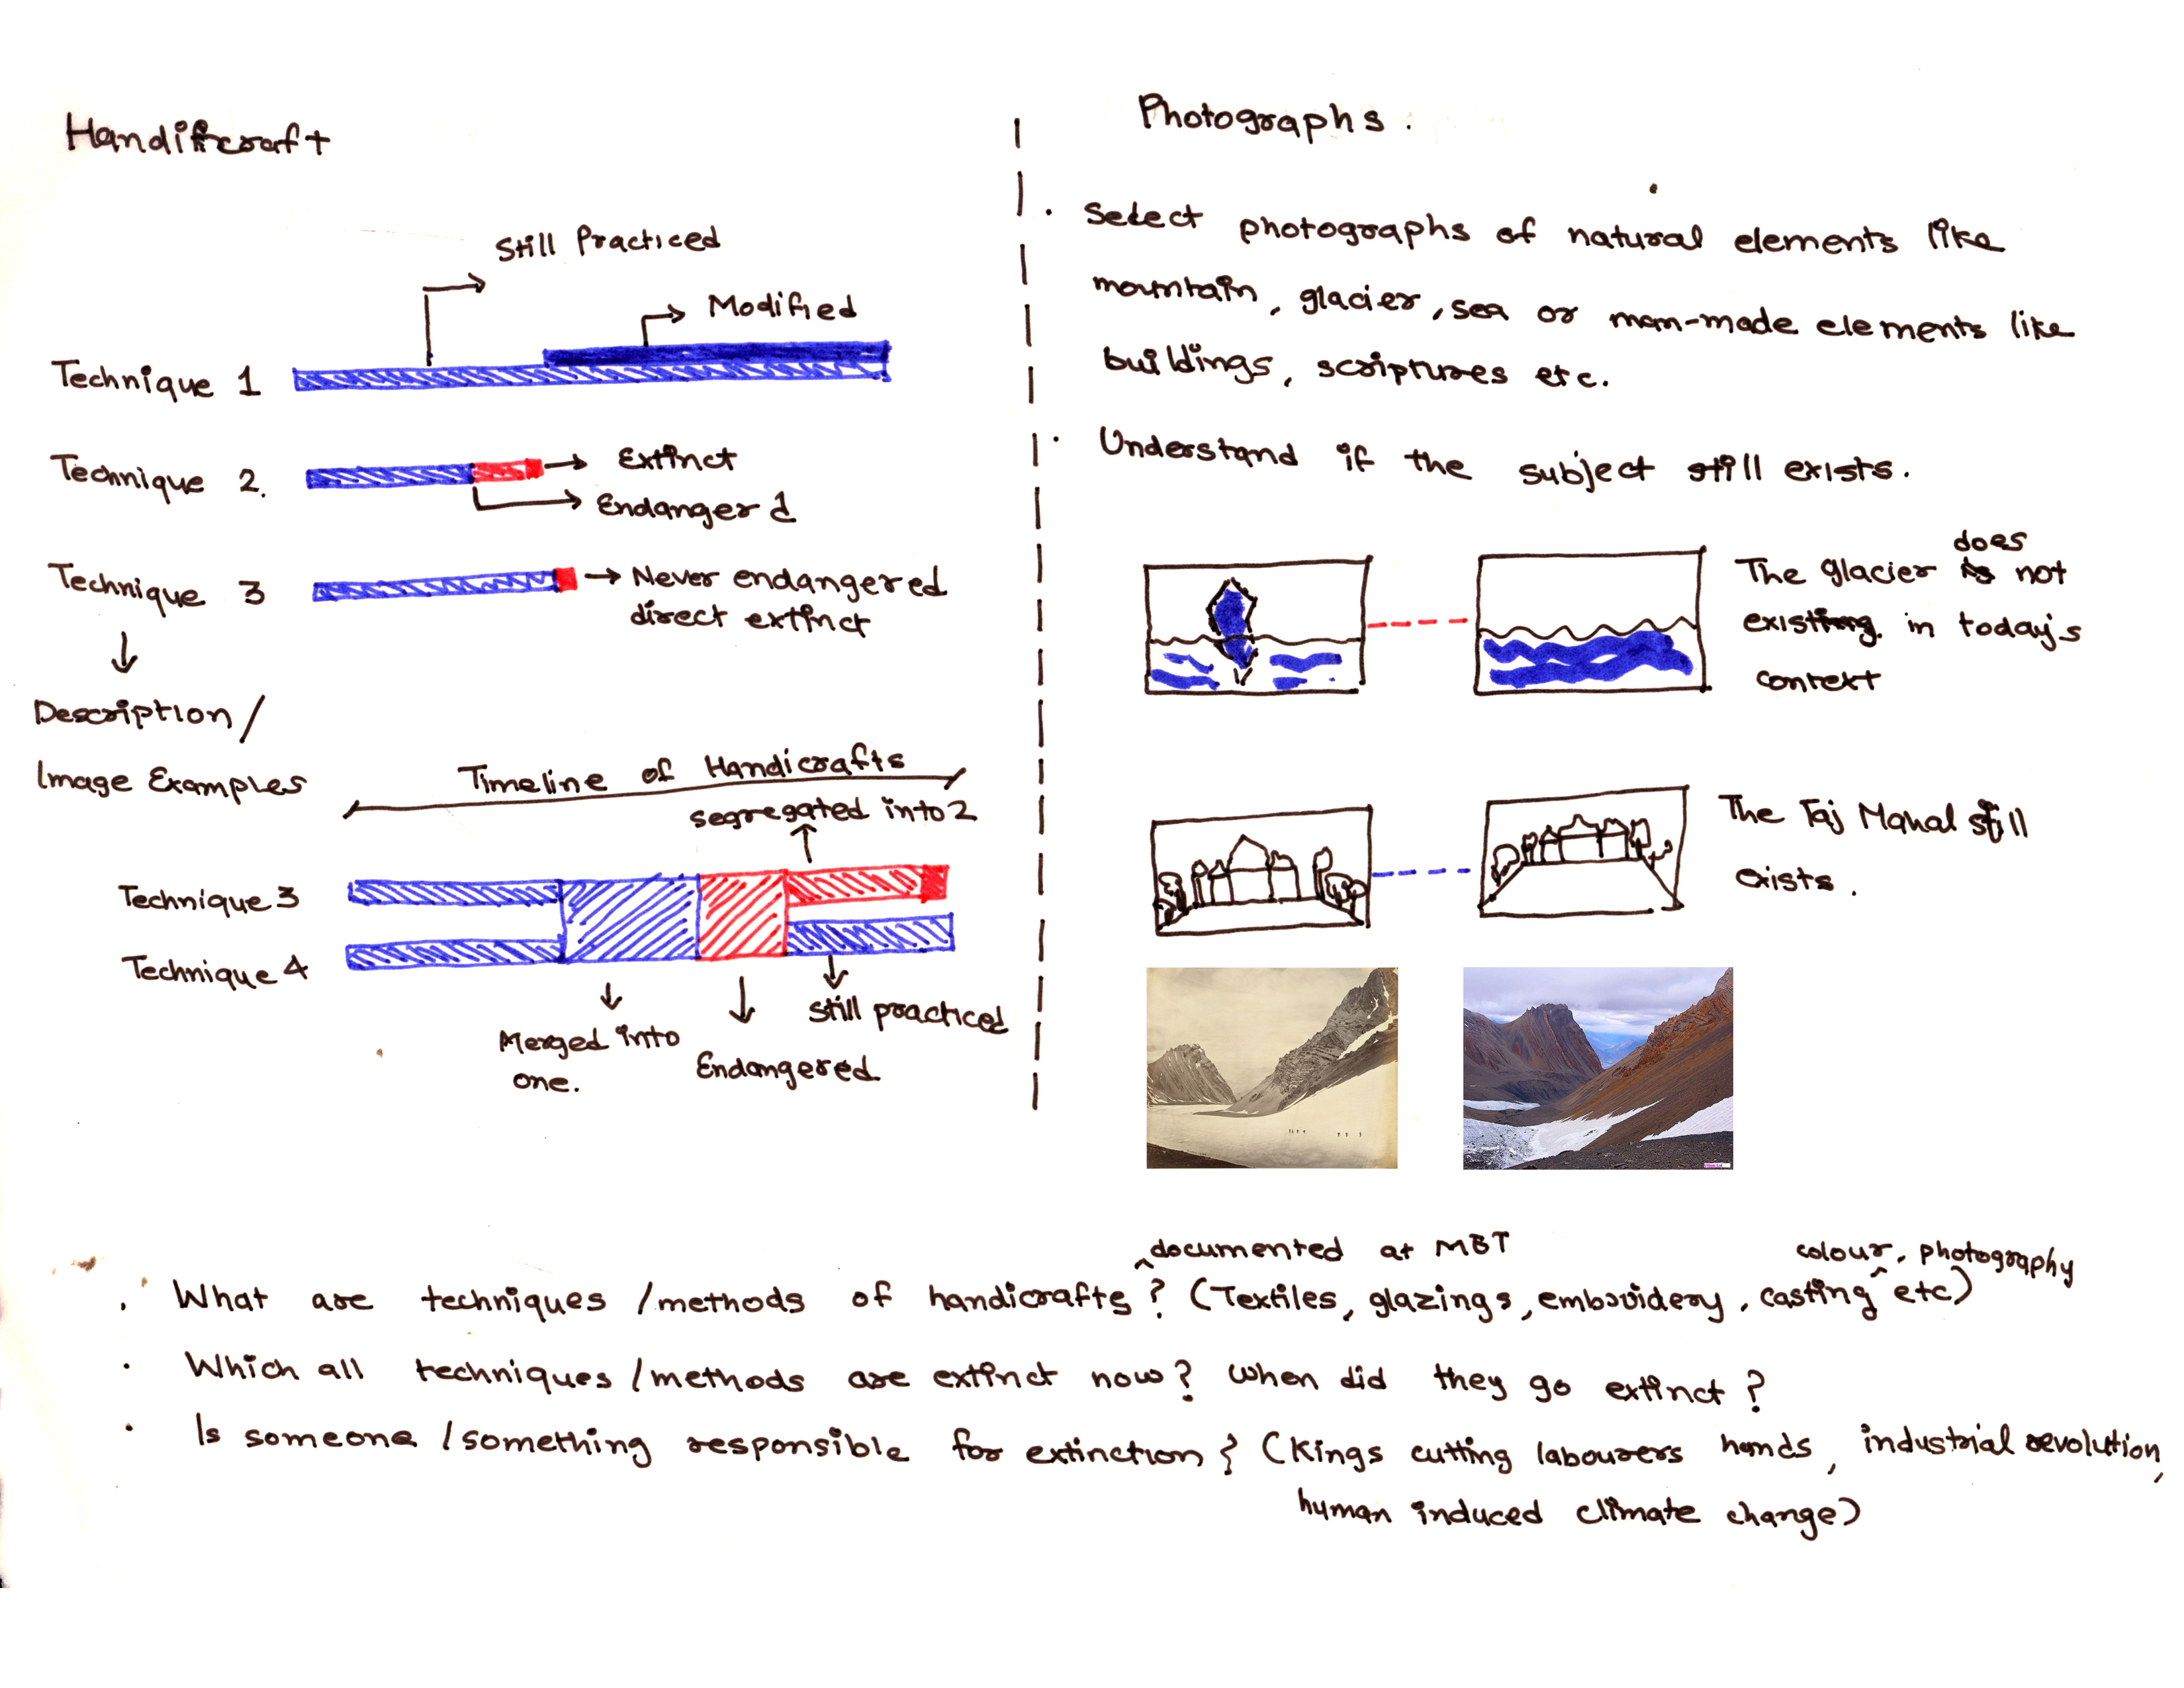 Handificraft
Still Practiced
Modified
Technique 1
Technique 2.
Extinct
Endangerd
Technique 3
Never endangered
direct extinct
Description/
Image Examples
Timeline of Handicrafts
segregated into 2
Technique 3
Technique 4
Merged into
one.
Endangered
Still practiced
Photographs.
· Select photographs of natural elements like
mountain, glacier, sea or man-made elements like
buildings, scriptures etc.
· Understand if the subject still exists.
does
The glacier is not
existing in today's
context
The Taj Mahal still
exists.
documented at MBT
colour, photography
· What are techniques / methods of handicrafts ? (Textiles, glazings, embroidery, casting etc)
· Which all techniques / methods are extinct now? When did they go extinct?
· Is someone / something responsible for extinction? (Kings cutting labourers hands, industrial revolution,
human induced climate change)